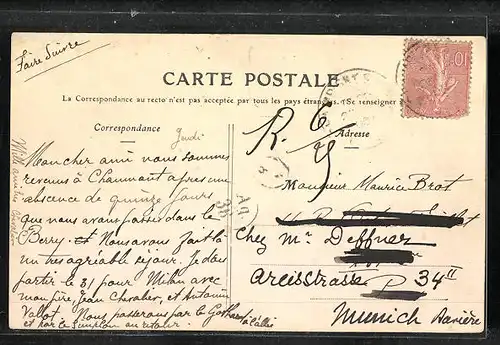 Faire Suivre
10
CARTE POSTALE
La Correspondance au recto n'est pas acceptée par tous les pays étrangers. (Se renseigner
Correspondance
Adresse
Jeudi
R. 6/9
Mon cher ami nous sommes
revenus à Chaumont apres une
absence de quinze jours
que nous avons passés dans le
Berry. et Nous avons fait là
un tres agréable sejour. Je dois
partir le 31 pour Milan avec
mon père, Jean Chevalier, et Antonin
Vallot. Nous passerons par le Gothard à l'aller
et par le Simplon au retour.
Monsieur Maurice Brot
Chez Mr Deffner
Arcisstrasse 34 II
Munich Bavière